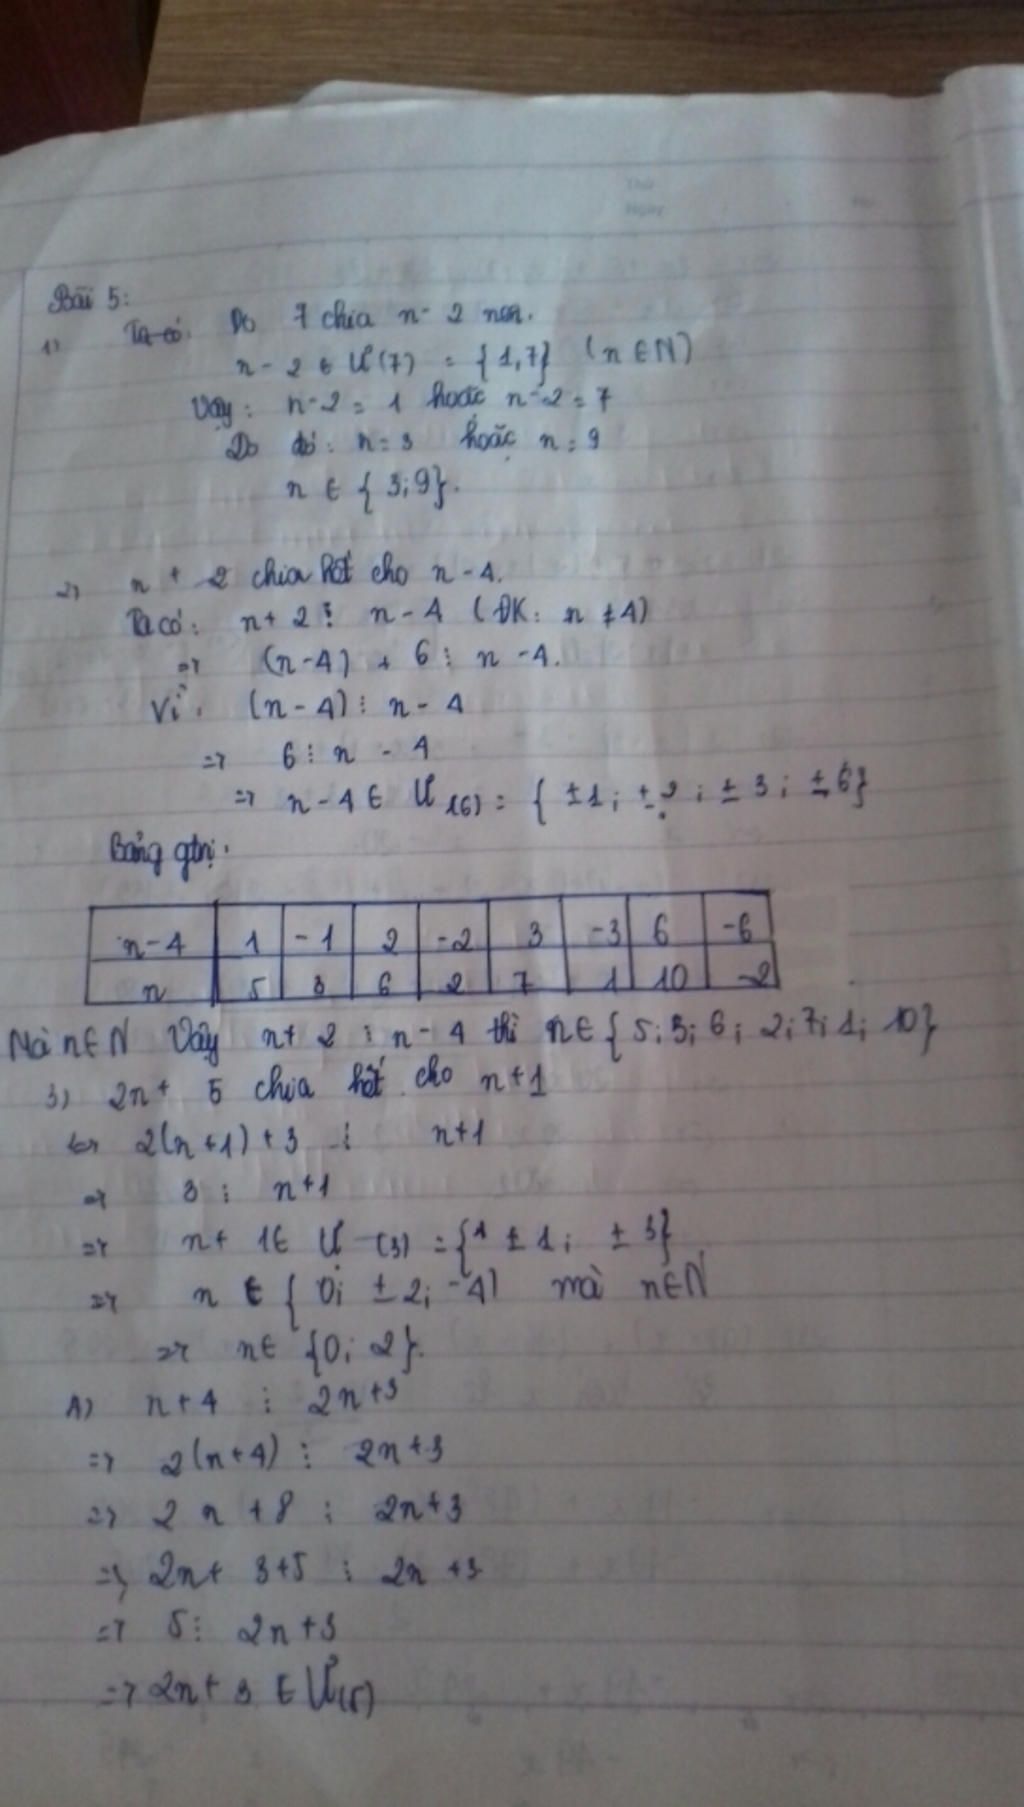 Thứ
Ngày
No.
Bài 5:
1) Ta có: Do 7 chia n - 2 nên.
n - 2 ∈ Ư(7) = {1,7} (n ∈ N)
Vậy: n - 2 = 1 hoặc n - 2 = 7
Do đó: n = 3 hoặc n = 9
n ∈ {3;9}.
2) n + 2 chia hết cho n - 4.
Ta có: n + 2 ⋮ n - 4 (ĐK: n ≠ 4)
=> (n - 4) + 6 ⋮ n - 4.
Vì: (n - 4) ⋮ n - 4
=> 6 ⋮ n - 4
=> n - 4 ∈ Ư(6) = {±1; ±2; ±3; ±6}
Bảng gtrị:
n-4 1 -1 2 -2 3 -3 6 -6
n 5 3 6 2 7 1 10 -2
Mà n ∈ N Vậy n + 2 ⋮ n - 4 thì n ∈ {5; 3; 6; 2; 7; 1; 10}
3) 2n + 5 chia hết cho n + 1
<=> 2(n + 1) + 3 ⋮ n + 1
=> 3 ⋮ n + 1
=> n + 1 ∈ Ư(3) = {± 1; ± 3}
=> n ∈ {0; ± 2; -4} mà n ∈ N
=> n ∈ {0; 2}.
4) n + 4 ⋮ 2n + 3
=> 2(n + 4) ⋮ 2n + 3
=> 2n + 8 ⋮ 2n + 3
=> 2n + 3 + 5 ⋮ 2n + 3
=> 5 ⋮ 2n + 3
=> 2n + 3 ∈ Ư(5)